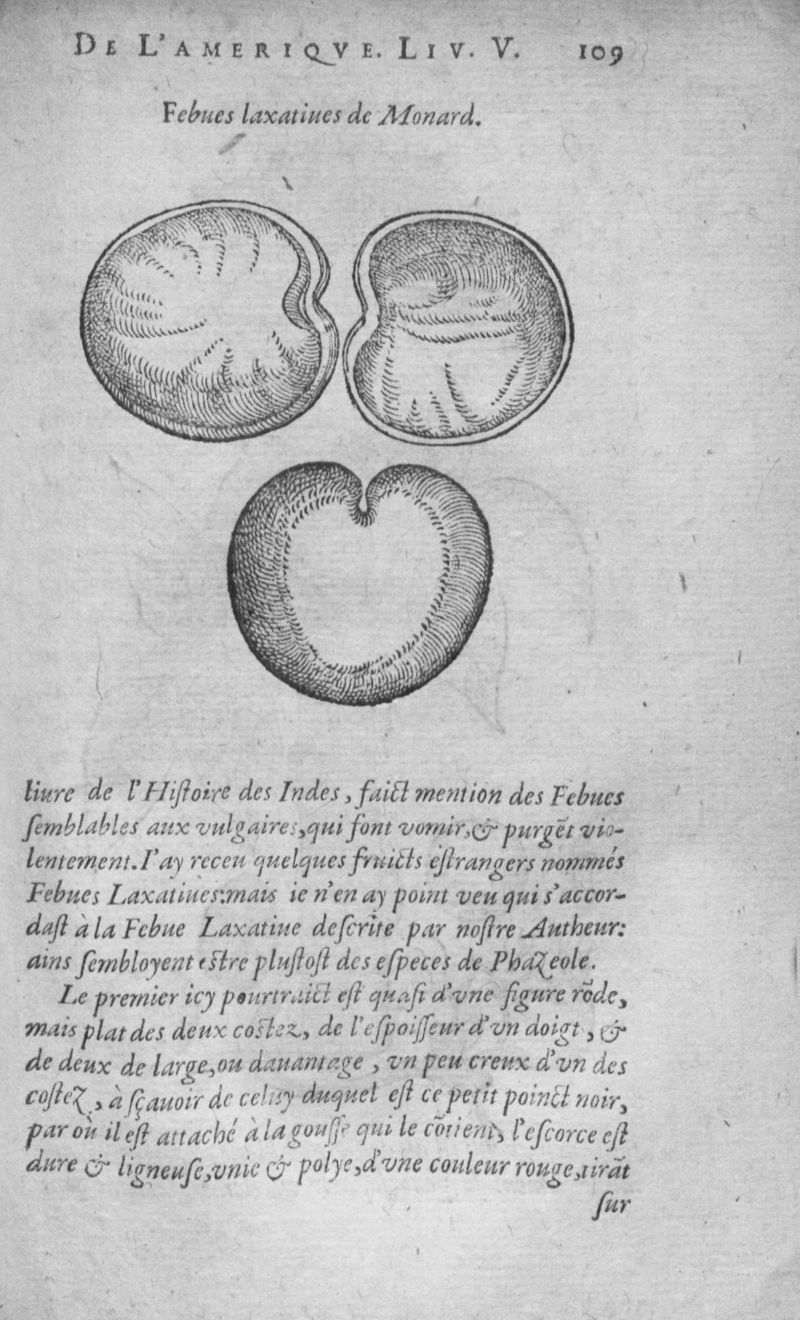 DE L'AMERIQVE. LIV. V. 109
Febues laxatiues de Monard.
liure de l'Hiſtoire des Indes, faict mention des Febues
ſemblables aux vulgaires, qui font vomir, & purgẽt vio-
lentement. I'ay receu quelques fruicts eſtrangers nommés
Febues Laxatiues: mais ie n'en ay point veu qui s'accor-
daſt à la Febue Laxatiue deſcrite par noſtre Autheur:
ains ſembloyent eſtre pluſtoſt des eſpeces de Phazeole.
Le premier icy pourtraict eſt quaſi d'vne figure rõde,
mais plat des deux coſtez, de l'eſpoiſſeur d'vn doigt, &
de deux de large, ou dauantage, vn peu creux d'vn des
coſtez, à ſçauoir de celuy duquel eſt ce petit poinct noir,
par où il eſt attaché à la gouſſe qui le cõtient, l'eſcorce eſt
dure & ligneuſe, vnie & polye, d'vne couleur rouge, tirãt
ſur